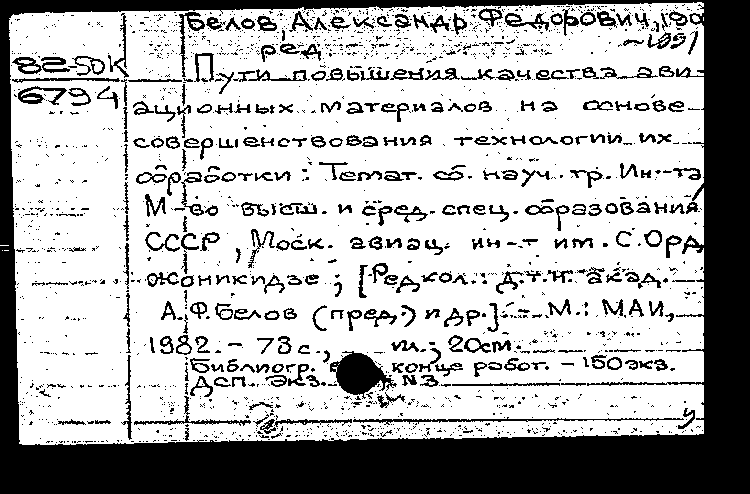 Белов, Александр Федорович, 190
~1991
ред.
82-50К
6794
Пути повышения качества ави-
ационных материалов на основе
совершенствования технологии их
обработки : Темат. сб. науч. тр. Ин-та
М-во высш. и сред. спец. образования
СССР, Моск. авиац. ин-т им. С. Орд
жоникидзе ; [Редкол.: д.т.н. акад.
А. Ф. Белов (пред.) и др.]. - М.: МАИ,
1982. - 73 с., ил.; 20 см.
Библиогр. в конце работ. - 150 экз.
ДСП. Экз. № 3